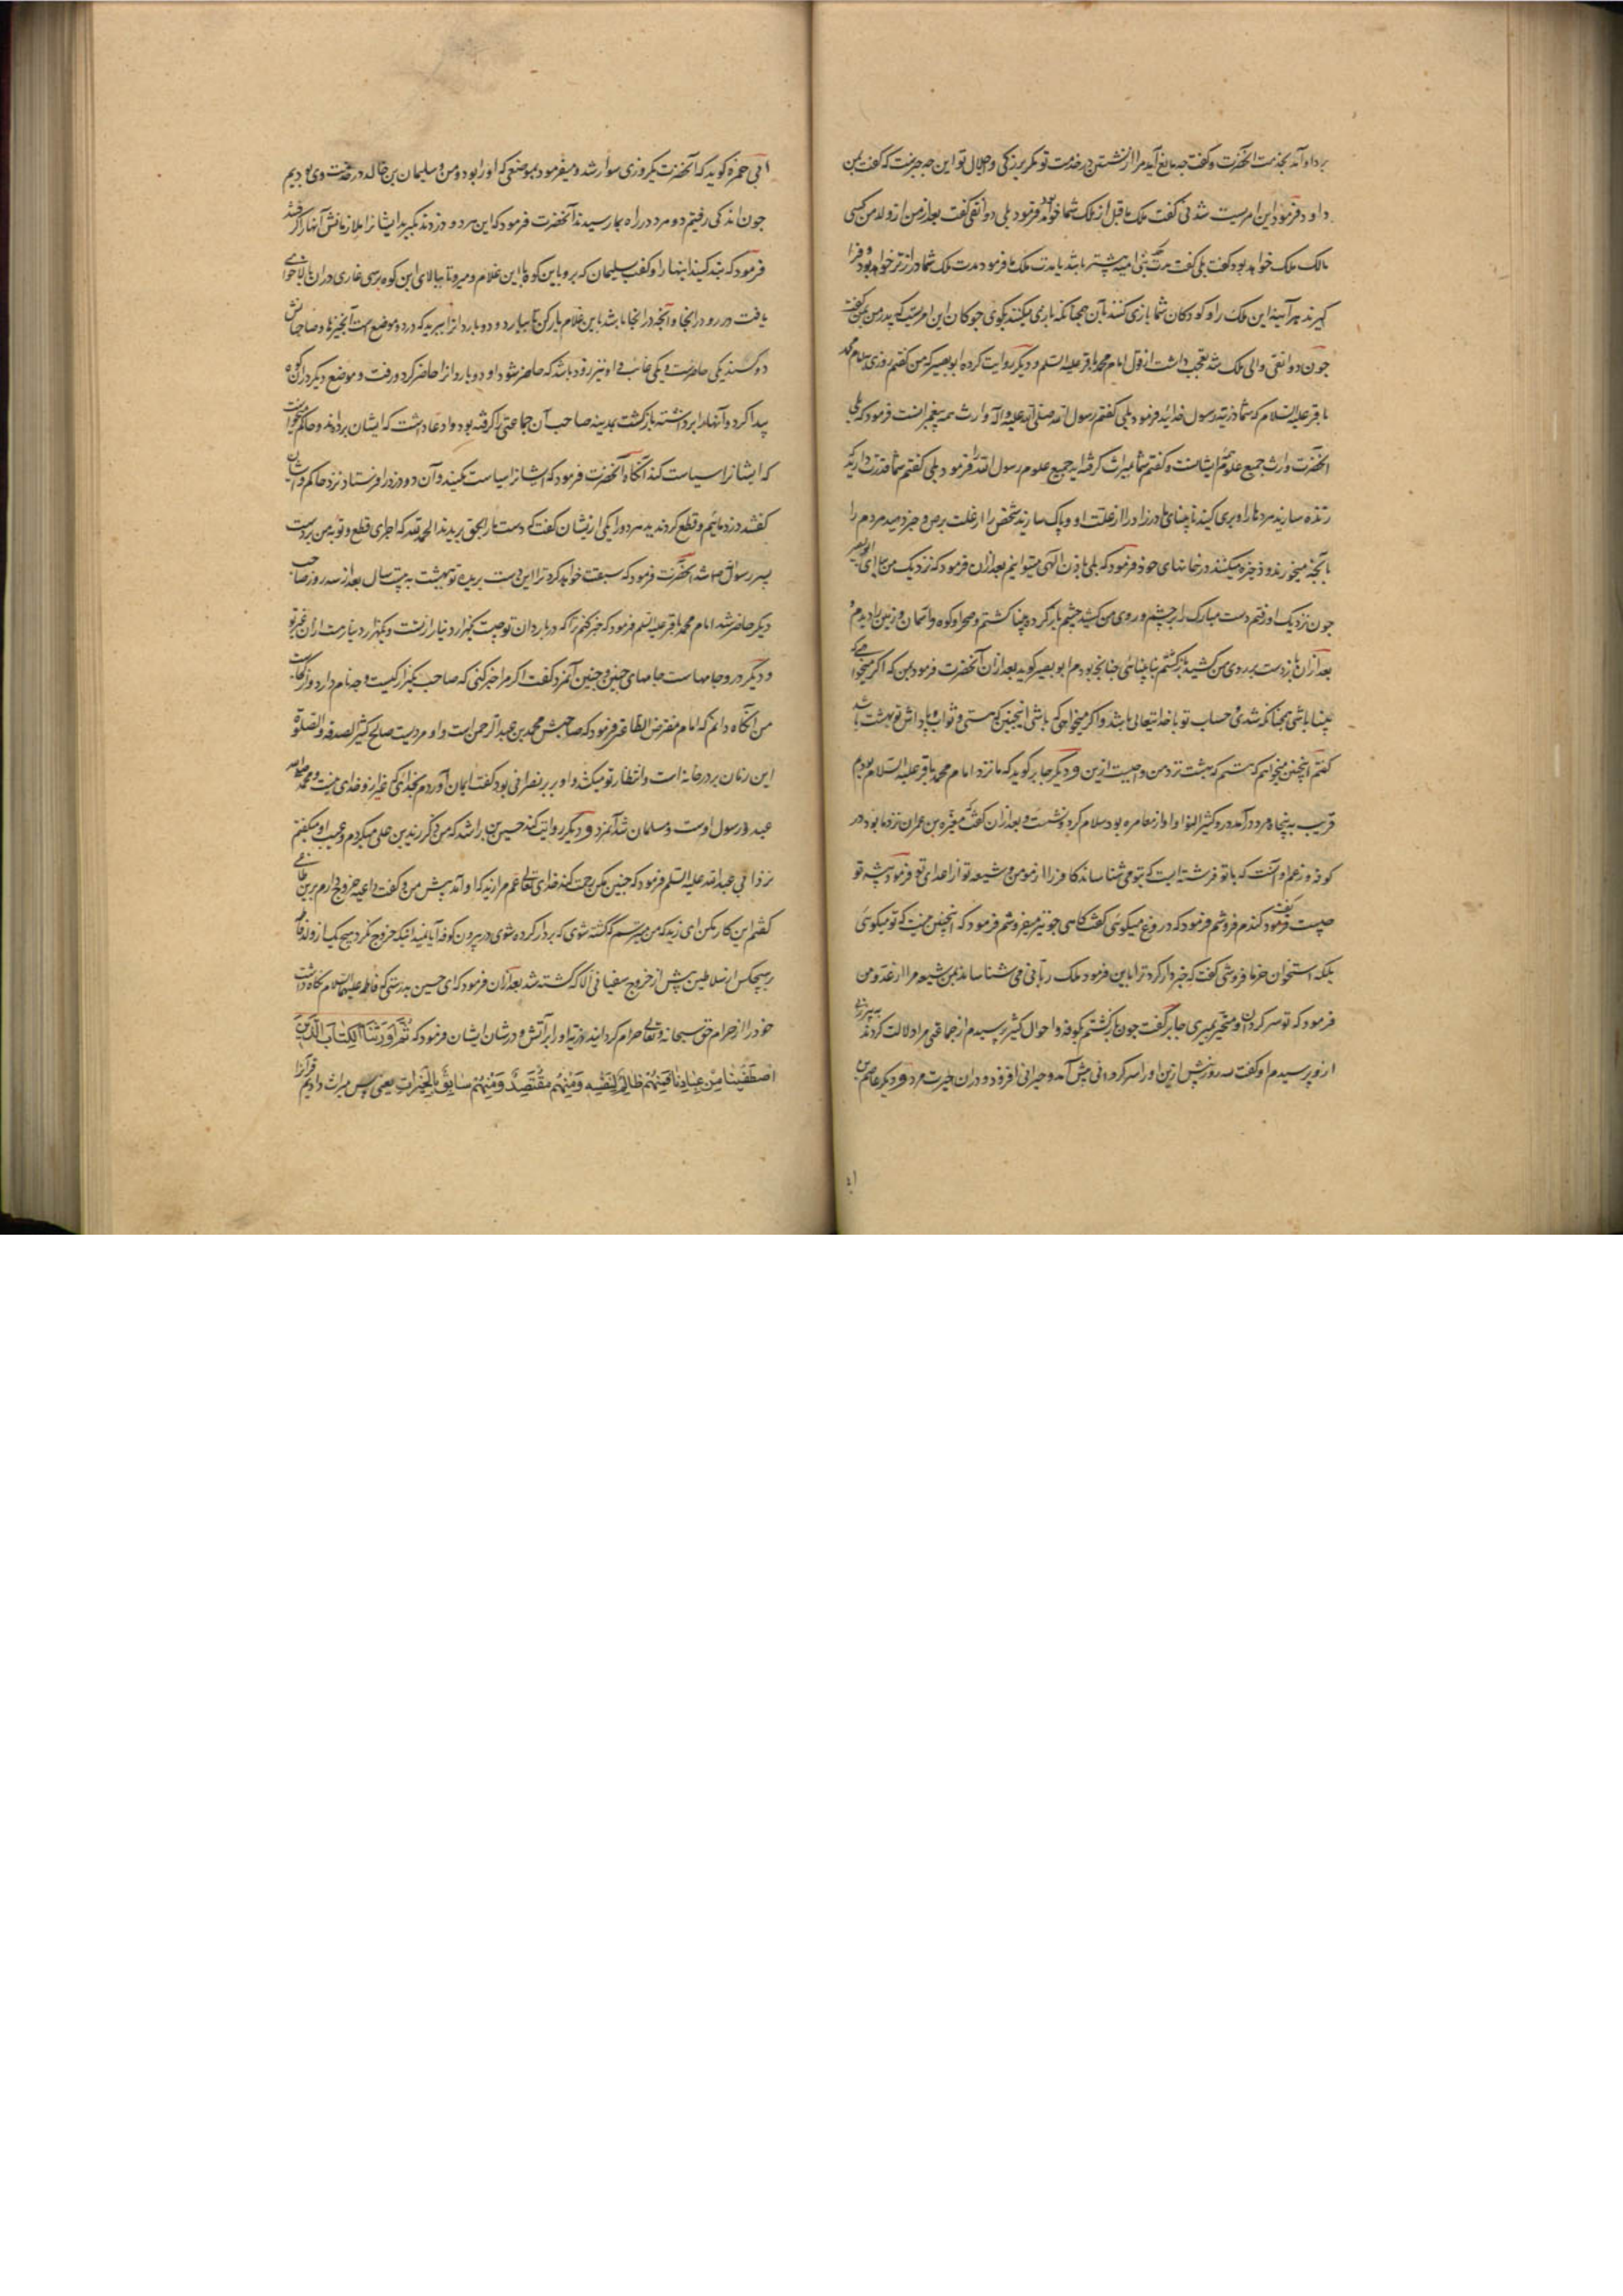 برداو آمد بخدمت آنحضرت و گفت چه مانع آید مرا از نشستن در خدمت تو مگر بزرگی و جلال تو این چه چیزست که گفت بمن
داود فرمود این امریست شدنی گفت ملک ما قبل از ملک شما خواهد بود فرمود بلی دوانقی گفت بعد از من از ولد من کسی
مالک ملک خواهد بود گفت بلی گفت مدت بنی امیه بیشتر باشد یا مدت ملک ما فرمود مدت ملک شما درازتر خواهد بود و فرا
گیرند هر آینه این ملک را و کودکان شما بازی کنند بآن همچنانکه بازی میکنند بگوی جوکان این امریست که پدر من بمن گفت
جون دوانقی والی ملک شد تعجب داشت از قول امام محمد باقر علیه السلم و دیگر روایت کرده ابو بصیر که من گفتم روزی بامام محمد
باقر علیه السلام که شما ذریت رسول خدائید فرمود بلی گفتم رسول الله صلی الله علیه و آله وارث همه پیغمبرانست فرمود که بلی
آنحضرت وارث جمیع علوم ایشانست و گفتم شما میراث گرفته اید جمیع علوم رسول الله را فرمود بلی گفتم شما قدرت دارید که
زنده سازید مردها را و بری کنید نابینای مادرزاد را از علت او و پاک سازید شخص را از علت برص و خبر دهید مردم را
بآنچه میخورند و ذخیره میکنند در خانهای خود فرمود که بلی باذن الهی میتوانیم بعد از آن فرمود که نزدیک من بیا ای ابو بصیر
جون نزدیک او رفتم دست مبارک را بر چشم و روی من کشید چشم باز کرده بینا گشتم و صحرا و کوه و آسمان و زمین را دیدم و
بعد از آن باز دست بر روی من کشید باز گشتم بنابینائی چنانچه بودم ابو بصیر گوید بعد از آن آنحضرت فرمود بمن که اگر میخواهی که
بینا باشی همچنانکه شدی و حساب تو با خدایتعالی باشد و اگر میخواهی که باشی اینچنین که هستی و ثواب و پاداش تو بهشت باشد
گفتم اینچنین میخواهم که هستم که بهشت نزد من و احبیت ازین و دیگر جابر گوید که ما نزد امام محمد باقر علیه السلام بودیم
قریب به پنجاه مرد درآمد در و کثیر النوا و او از مغامره بود سلام کرد و نشست و بعد از آن گفت که مغیره بن عمران نزد ما بود در
کوفه و زعم او آنست که با تو فرشته ایست که بتو می شناساند کافر را از مؤمن و شیعه تو از اعدای تو فرمود پیشه تو
چیست گفت فرمود گندم فروشم فرمود که دروغ میگوئی گفت گاهی جو نیز میفروشم فرمود که اینچنین نیست که تو میگوئی
بلکه استخوان خرما فروشی گفت که خبردار کرد ترا باین فرمود ملک ربانی می شناساند بمن شیعه مرا از عدو من
فرمود که تو سرگردان و متحیر بمیری جابر گفت جون بازگشتم بکوفه و احوال کثیر پرسیدم از جماعتی مرا دلالت کردند به پیرزنی
ازو پرسیدم او گفت سه روز پیش ازین او را سرگردانی پیش آمد و حیرانی افزود و در آن حیرت مرد و دیگر عاصم بن
ابی حمزه گوید که آنحضرت یکروزی سوار شد و میفرمود بموضعی که او را بود و من و سلیمان بن خالد در خدمت وی بودیم
جون اندکی رفتیم دو مرد در راه بما رسیدند آنحضرت فرمود که این مرد و دزدند بگیرید ایشانرا ملازمانش آنها را گرفتند
فرمود که بند کنید اینها را و گفت بسلیمان که برو باین کوه با این غلام و میرو تا ببالای این کوه برسی غاری در آن بالا خواهی
یافت در رو در انجا و آنچه در انجا باشد باین غلام بار کن تا بیارد و دو بار دانرا ببرید که در دو موضع است آنچیزها و صاحبانش
دو کسند یکی حاضرست و یکی غائب و او نیز زود باشد که حاضر شود او دو بار دانرا حاضر کرد و رفت و موضع دیگر در آن کوه
پیدا کرد و آنها را برداشته بازگشت بمدینه صاحب آن جماعتی را گرفته بود و ادعا داشت که ایشان برده اند و حاکم میخواست
که ایشانرا سیاست کند آنگاه آنحضرت فرمود که ایشانرا سیاست مکنید و آن دو دزد را فرستاد نزد حاکم و ایشان
گفتند دزد مائیم و قطع کردند ید هر دو را یکی ازیشان گفت که دست ما را بحق بریدند الحمد لله که اجرای قطع و توبه من بر دست
پسر رسول الله شد آنحضرت فرمود که سبقت خواهد کرد ترا این دست بریده تو ببهشت به بیست سال بعد از سه روز صاحب
دیگر حاضر شد امام محمد باقر علیه السلم فرمود که خبر کنم ترا که در باردان تو چیست یکهزار دینار از تست و یکهزار دینارست از آن غیر تو
و دیگر درو جامهاست جامهای چنین و چنین آنمرد گفت اگر مرا خبر کنی که صاحب یکهزار کیست و چه نام دارد و از کجاست
من آنگاه دانم که امام مفترض الطاعه فرمود که صاحبش محمد بن عبد الرحمن است و او مردیست صالح کثیر الصدقه و الصلوة
این زمان بر در خانه است و انتظار تو میکشد و او بربر نصرانی بود گفت ایمان آوردم بخدائی که غیر از و خدای نیست و محمد
عبد و رسول اوست و مسلمان شد آنمرد و دیگر روایت کند حسین بن راشد که من ذکر زید بن علی میکردم و عیب او میگفتم
نزد ابی عبد الله علیه السلم فرمود که چنین مکن رحمت کند خدای تعالی عم مرا زید که او آمد پیش من و گفت داعیه خروج دارم برین طاغی
گفتم این کار مکن ای زید که من میترسم که کشته شوی که بردار کرده شوی در بیرون کوفه آیا نمیدانی که خروج نکرد هیچ یک از ولد فاطمه
بر هیچکس از سلاطین پیش از خروج سفیانی الا که کشته شد بعد از آن فرمود که ای حسین بدرستی که فاطمه علیها السلام نگاه داشت
خود را از حرام حق سبحانه و تعالی حرام گردانید ذریه او را بر آتش و در شان ایشان فرمود که ثم اورثنا الکتاب الذین
اصطفینا من عبادنا فمنهم ظالم لنفسه ومنهم مقتصد ومنهم سابق بالخیرات یعنی پس میراث دادیم قرآنرا